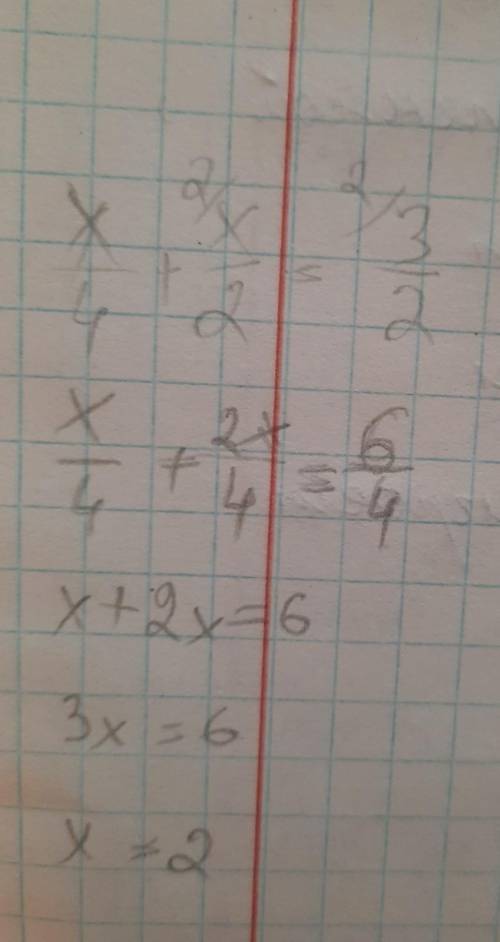 x/4 + ²⁄x/2 = ²⁄3/2
x/4 + 2x/4 = 6/4
x+2x=6
3x=6
x=2